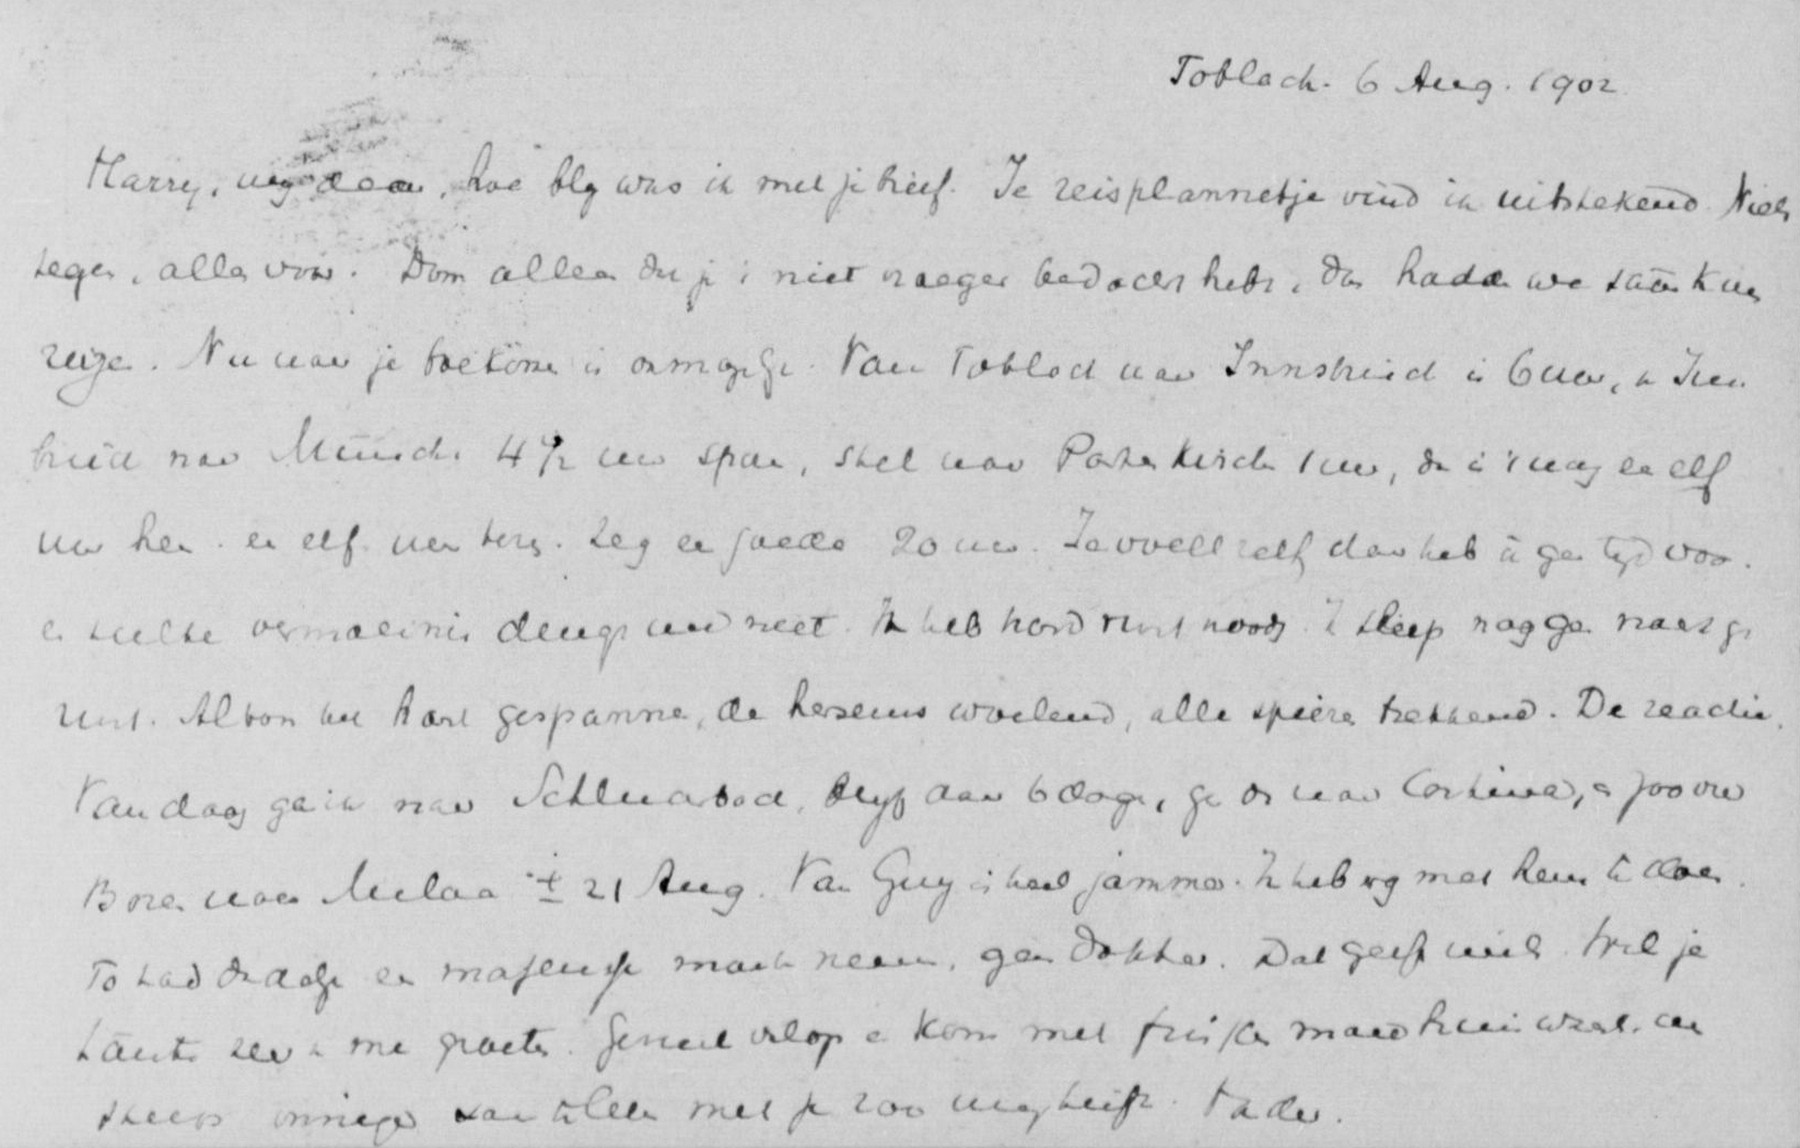 Toblach. 6 Aug. 1902
Harry, hoe bly was ik met je brief. Je reisplannetje vind ik uitstekend. Niets
tegen, alles voor. Dom alleen dat je 't niet vroeger bedacht hebt, dan hadden we samen kunnen
reizen. Nu naar je toekomen is onmogelijk. Van Toblach naar Innsbruck is 6 uur, en Inns
bruck naar München 4 1/2 uur spoor, stel naar Partenkirchen 1 uur, dan is 't nog een elf
uur heen en elf uur terug. Zeg een goede 20 uur. Jawohl zelf daar heb ik geen tyd voor.
en zulke vermoeienis deugt me niet. Ik heb hard rust noodig. Ik sliep nog geen nacht ge
rust. Altoos het hart gespannen, de hersens woelend, alle spieren trekkend. De reactie.
Vandaag ga ik naar Schluderbach, blyf daar 6 dagen, ga dan naar Cortina, en zoo over
Bozen naar Milaan ± 21 Aug. Van Guy is heel jammer. Ik heb erg met hem te doen.
To had dadelyk een masseuse moeten nemen, geen dokter. Dat geeft niets. Wil je
tante zeer van me groeten. Geniet volop en kom met frissche moed huiswaarts om
steeds inniger saam te leven met je zoo innig liefh. Vader.